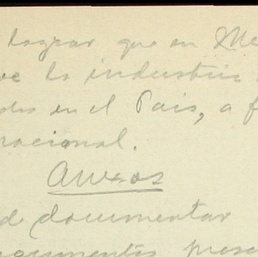 lograr que en Me
ve la industria
des en el Pais, a f
nacional.
Anexos
d documentar
gumentos prese